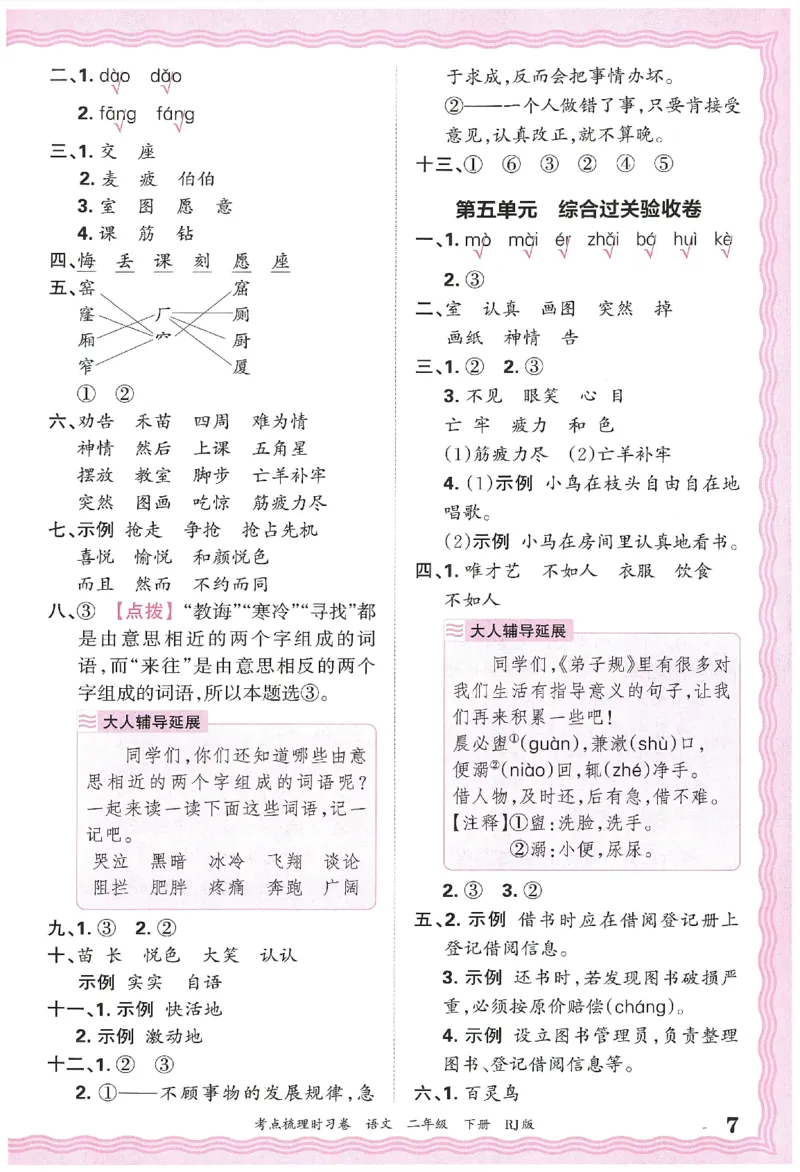 二、1. dào dǎo
2. fāng fáng
三、1. 交 座
2. 麦 疲 伯伯
3. 室 图 愿 意
4. 课 筋 钻
四、悔 丢 课 刻 愿 座
五、窑 窟
窿 厂 厕
厢 穴 厨
窄 厦
① ②
六、劝告 禾苗 四周 难为情
神情 然后 上课 五角星
摆放 教室 脚步 亡羊补牢
突然 图画 吃惊 筋疲力尽
七、示例 抢走 争抢 抢占先机
喜悦 愉悦 和颜悦色
而且 然而 不约而同
八、③ 【点拨】“教诲”“寒冷”“寻找”都
是由意思相近的两个字组成的词
语,而“来往”是由意思相反的两个
字组成的词语,所以本题选③。
大人辅导延展
同学们,你们还知道哪些由意
思相近的两个字组成的词语呢?
一起来读一读下面这些词语,记一
记吧。
哭泣 黑暗 冰冷 飞翔 谈论
阻拦 肥胖 疼痛 奔跑 广阔
九、1. ③ 2. ②
十、苗 长 悦色 大笑 认认
示例 实实 自语
十一、1. 示例 快活地
2. 示例 激动地
十二、1. ② ③
2. ①——不顾事物的发展规律,急
于求成,反而会把事情办坏。
②——一个人做错了事,只要肯接受
意见,认真改正,就不算晚。
十三、① ⑥ ③ ② ④ ⑤
第五单元 综合过关验收卷
一、1. mò mài ér zhǎi bó huì kè
2. ③
二、室 认真 画图 突然 掉
画纸 神情 告
三、1. ② 2. ③
3. 不见 眼笑 心 目
亡 牢 疲力 和 色
(1)筋疲力尽 (2)亡羊补牢
4. (1)示例 小鸟在枝头自由自在地
唱歌。
(2)示例 小马在房间里认真地看书。
四、1. 唯才艺 不如人 衣服 饮食
不如人
大人辅导延展
同学们,《弟子规》里有很多对
我们生活有指导意义的句子,让我
们再来积累一些吧!
晨必盥①(guàn),兼漱(shù)口,
便溺②(niào)回,辄(zhé)净手。
借人物,及时还,后有急,借不难。
【注释】①盥:洗脸,洗手。
②溺:小便,尿尿。
2. ③ 3. ②
五、2. 示例 借书时应在借阅登记册上
登记借阅信息。
3. 示例 还书时,若发现图书破损严
重,必须按原价赔偿(cháng)。
4. 示例 设立图书管理员,负责整理
图书、登记借阅信息等。
六、1. 百灵鸟
考点梳理时习卷 语文 二年级 下册 RJ版 7